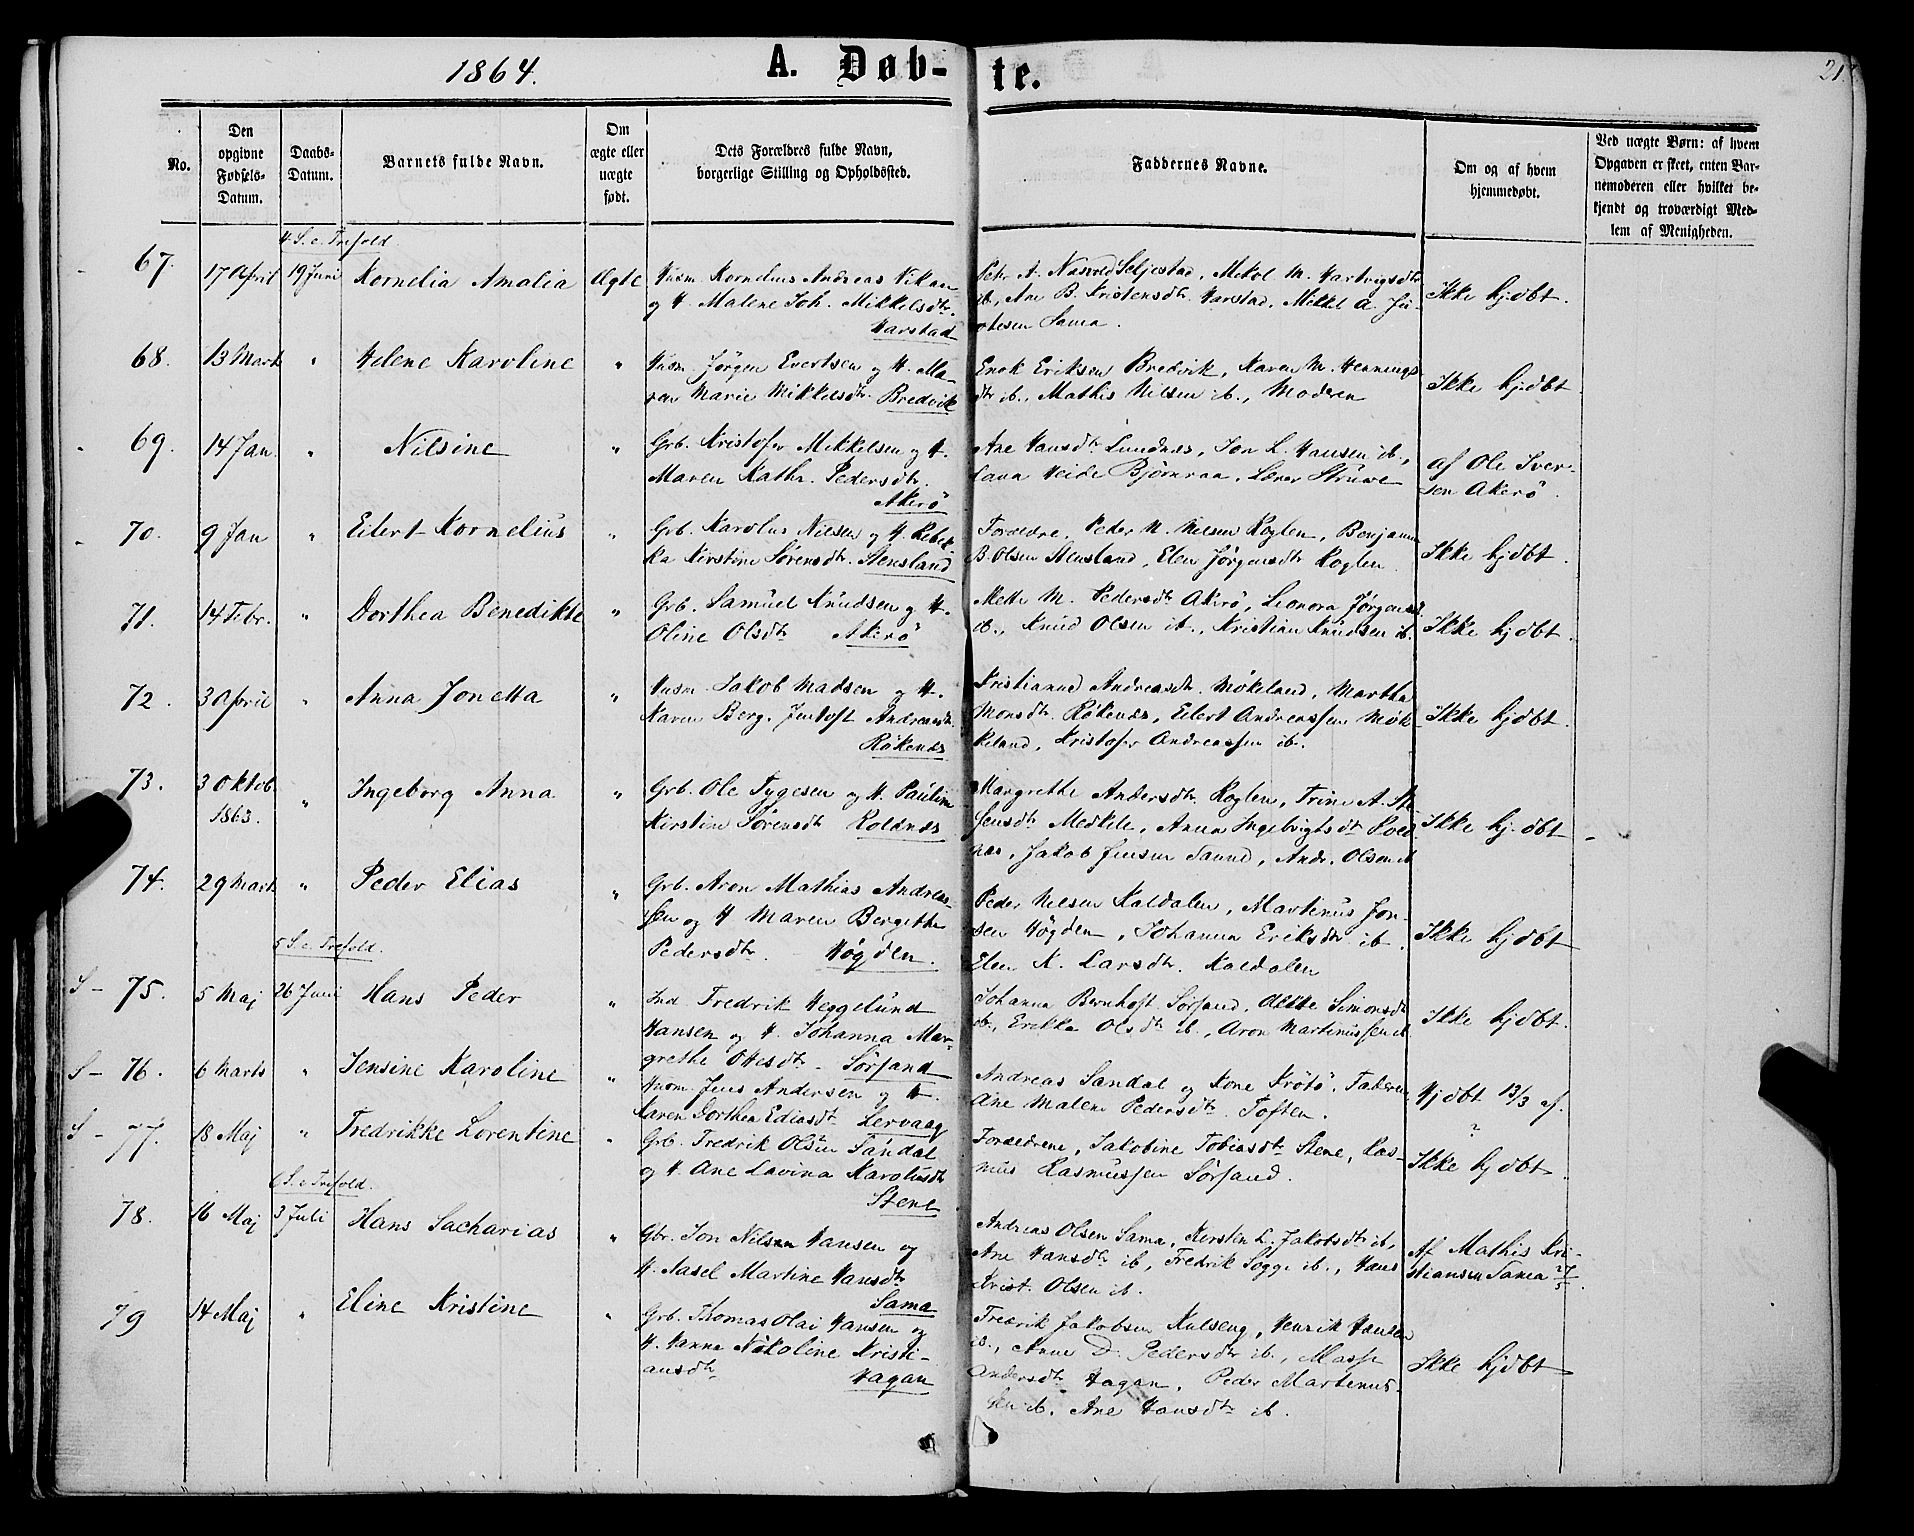 1864.
A. Døb-
te.
21
No.
Den
opgivne
Fødsels-
Datum.
Daabs-
Datum.
Barnets fulde Navn.
Om
ægte eller
uægte
født.
Dets Forældres fulde Navn,
borgerlige Stilling og Opholdssted.
Faddernes Navne.
Om og af hvem
hjemmedøbt.
Ved uægte Børn: af hvem
Opgaven er skeet, enten Bar-
nemoderen eller hvilket be-
kjendt og troværdigt Med-
lem af Menigheden.
4 S. e. Trefold.
67.
17 April
19 Juni
Kornelia Amalia
Ægte
Husm. Kornelius Andreas Vikan
og H. Malene Joh. Mikkelsdtr.
Harstad
Petr. A. Seljestad, Mekel M. Hartvigsdtr
ib., Ane B. Kristensdtr. Harstad, Mekkel A.
Sama.
Ikke hjdbt.
68.
13 Marts
"
Helene Karoline
"
Husm. Jørgen Evertsen og H. Ma-
ren Marie Mikkelsdtr. Bredvik
Enok Eriksen Bredvik, Karen M. Hennings
dtr ib., Mathis Nilsen ib., Moderen
Ikke hjdbt
69.
14 Jan
"
Nilsine
"
Grb. Kristofer Mekkelsen og H.
Maren Kathr. Pedersdtr.
Akerö
Ane Hansdtr Lundnes, Jon L. Hansen ib.,
Heide Bjørnraa, Lærer Struwe
af Ole Iver-
sen Akerö.
70.
9 Jan
"
Eilert Kornelius
"
Grb. Karolus Nilsen og H. Rebek-
ka Kirstine Sørensdtr. Stensland
Forældre, Peder N. Nilsen Koglen, Benjamin
B. Olsen Stensland, Elen Jørgensdtr Koglen
Ikke hjdbt.
71.
14 Febr.
"
Dorthea Benedikte
"
Grb. Samuel Knudsen og H.
Oline Olsdtr Akerö
Mette M. Pedersdtr Akerö, Leonora Jørgensd
ib., Knud Olsen ib., Kristian Knudsen ib.
Ikke hjdbt.
72.
3 April
"
Anna Jonetta
"
Husm. Jakob Madsen og H.
Karen Berg. Jentoft Andreasdtr.
Röknes
Kristianne Andreasdtr. Møkeland, Martha
Monsdtr. Røkenes, Eilert Andreassen Møk-
keland, Kristofer Andreassen ib.
Ikke hjdbt.
73.
3 Oktob
1863.
"
Ingeborg Anna
"
Grb. Ole Tygesen og H. Pauline
Kirstine Sørensdtr Koldnes
Margrethe Andersdtr. Koglen, Trine A. Ste
fensdtr Medkile, Anna Ingebrigtsdtr Kold
nes, Jakob Jensen Sand, Andr. Olsen ib
Ikke hj.dbt
74.
29 Marts
"
Peder Elias
"
Grb. Aron Mathias Andreas-
sen og H Maren Bergitthe
Pedersdtr. Høgden.
Peder Nilsen Kaldalen, Martinus Jon-
sen Høgden, Johanna Eriksdtr ib
Elen K. Larsdtr. Kaldalen
Ikke hjdbt
5 S. e. Trefold.
S - 75.
5 Maj
26 Juni
Hans Peder
"
Ind. Fredrik Heggelund
Hansen og H. Johanna Mar-
grethe Ottesdtr. Sørsand
Johanna Bernhoft Sørsand, Ulrikke Simonsdtr
ib., Erikka Olsdtr ib., Aron Martinussen ib
Ikke hjdbt.
S - 76.
6 Marts
"
Jensine Karoline
"
Husm. Jens Andersen og H.
Karen Dorthea Eliasdtr Lervaag
Andreas Sandal og Kone Krøtö, Faderen
Ane Malene Pedersdtr. Toften.
Hjdbt 13/3 af.
?
S - 77.
18 Maj
"
Fredrikke Lorentine
"
Grb. Fredrik Olsen Sandal
og H. Ane Lavina Karolusdtr
Stene
Forældrene, Jakobine Tobiasdtr Stene, Ras-
mus Rasmussen Sørsand.
Ikke hjdbt
6 S. e Trefold.
78.
16 Maj
3 Juli
Hans Sacharias
"
Gbr. Jon Nilsen Hansen og
H. Aasel Martine Hansdtr
Sama
Andreas Olsen Sama, Kirsten L. Jakobsdtr ib,
Ane Hansdtr ib, Fredrik Sogge ib., Hans
Krist. Olsen ib.
Af Mathis Kri-
stiansen Sama 27/5.
79
14 Maj
"
Eline Kristine
"
Grb. Thomas Olai Hansen og
H. Hanna Nikoline Kristi-
ansdtr Hagan
Fredrik Jakobsen Kulseng, Henrik Hansen
ib., Anne D. Pedersdtr ib., Masse
Andersdtr Hagan, Peder Martinus-
sen ib. Ane Hansdtr ib.
Ikke hjdbt